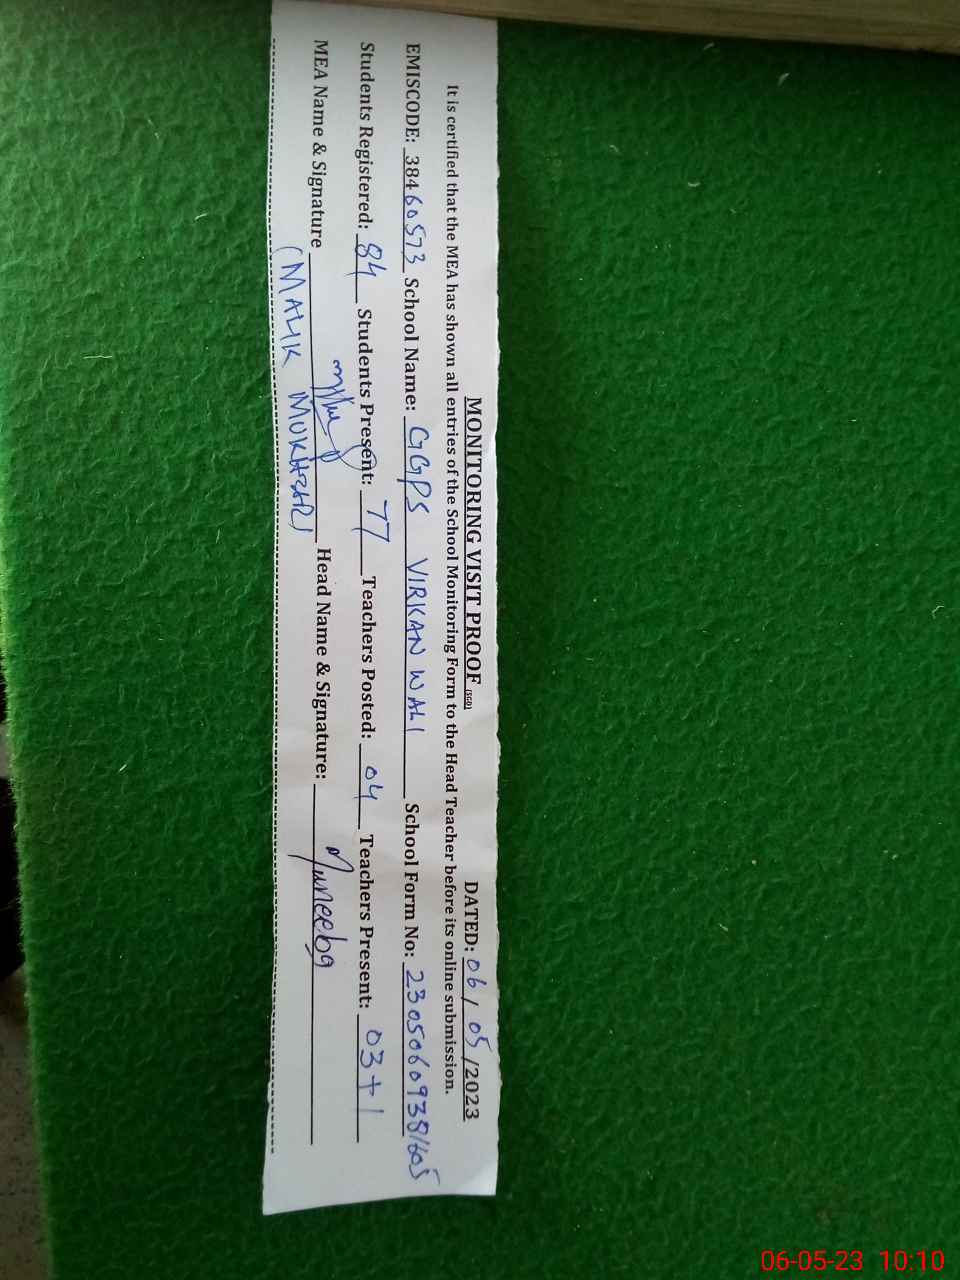 MONITORING VISIT PROOF (SGD) DATED: 06/05/2023
It is certified that the MEA has shown all entries of the School Monitoring Form to the Head Teacher before its online submission.
EMISCODE: 38460573 School Name: GGPS VIRKAN WALI School Form No:
Students Registered: 84 Students Present: 77 Teachers Posted: 04 Teachers Present: 03+1
MEA Name & Signature Head Name & Signature: Muneeba
(MALIK
06-05-23 10:10